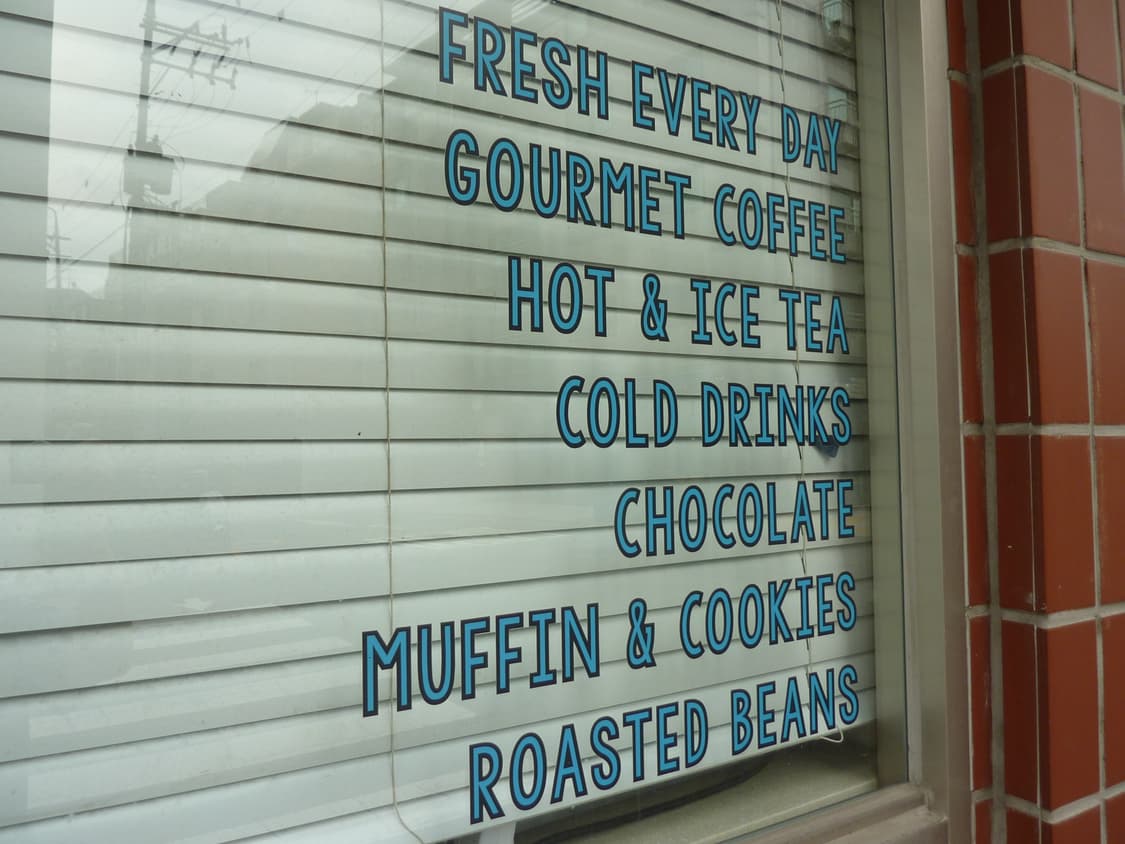 FRESH EVERY DAY
GOURMET COFFEE
HOT & ICE TEA
COLD DRINKS
CHOCOLATE
MUFFIN & COOKIES
ROASTED BEANS